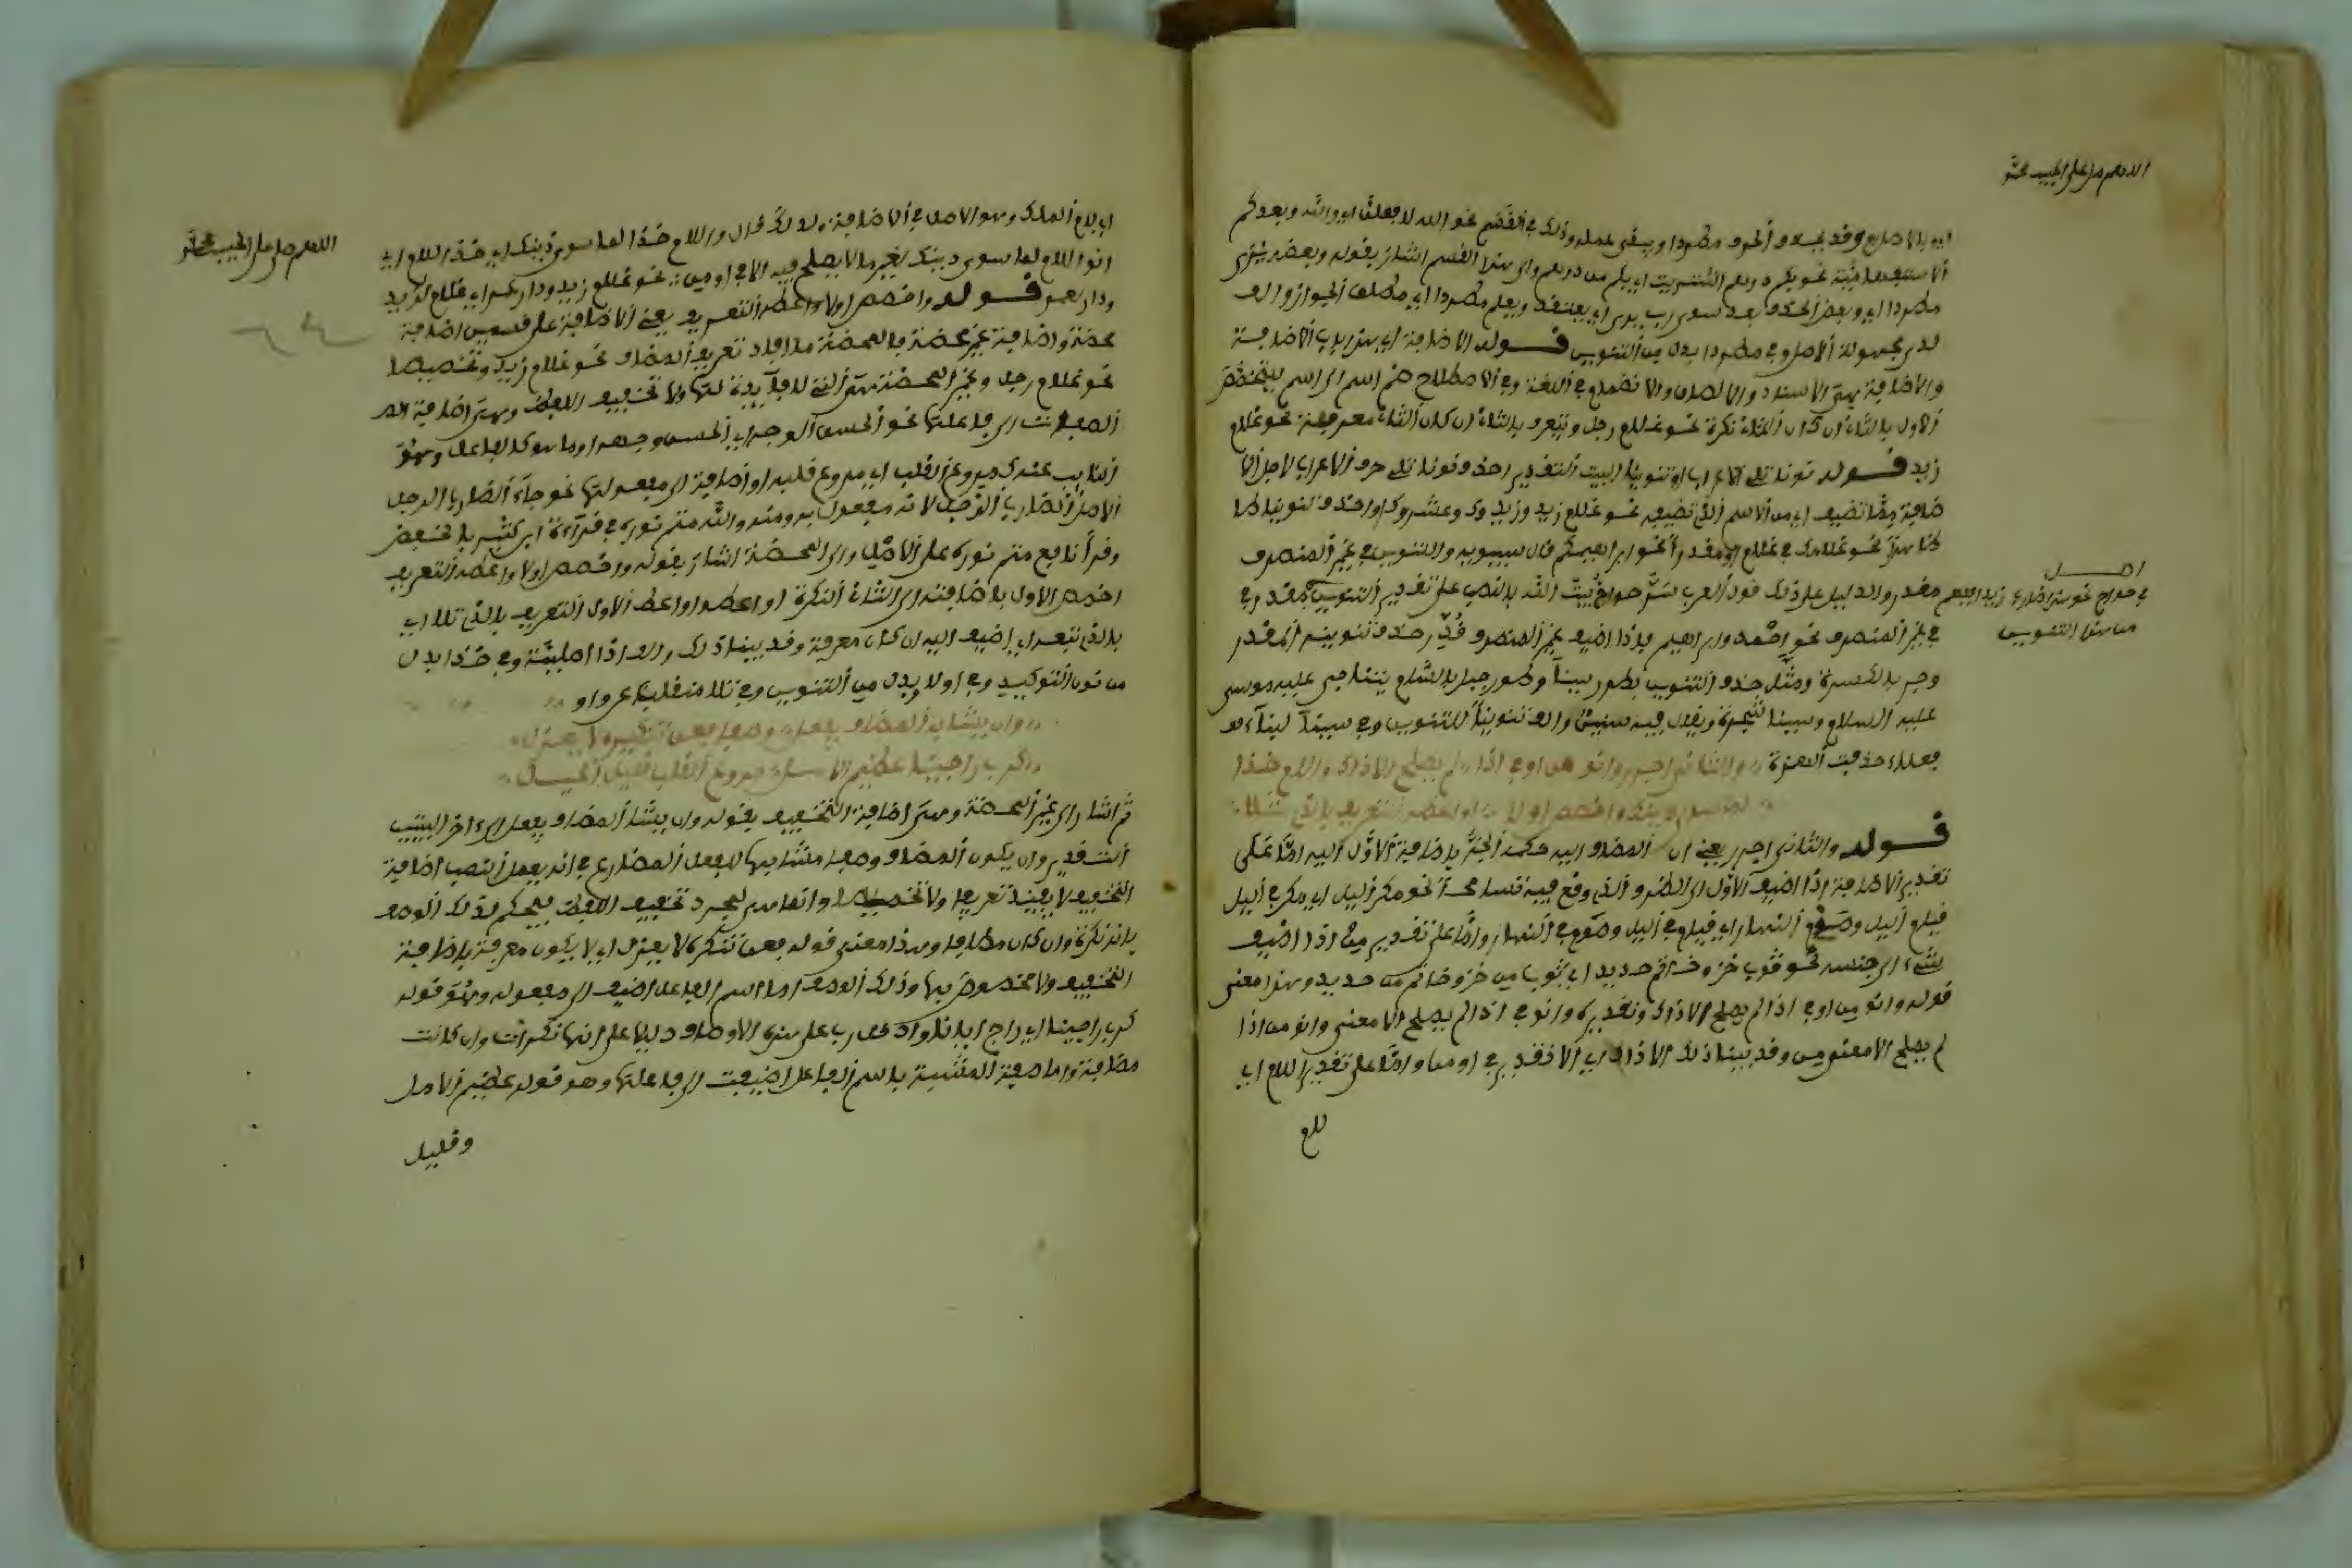 اللهم صل على الحبيب محمد
أي بالإضافة وقد يحذف الحرف مطردا ويبقى عمله وذلك في القسم نحو الله لأفعلن أي والله وبعد كم
الاستفهامية نحو بكم درهم اشتريت أي بكم من درهم وإلى هذا القسم أشار بقوله وبعضه يرى
مطردا أي وبعض الحذف بعد سوى رب يرى أي يعتقد ويعلم مطردا أي مطلق الجواز وألف
مطردا بدل من التنوين قوله الإضافة أي هذا باب الإضافة
والإضافة هي الإسناد والإلصاق والانضمام في اللغة وفي الاصطلاح ضم اسم إلى اسم ليتخصص
الأول بالثاني إن كان الثاني نكرة نحو غلام رجل ويتعرف بالثاني إن كان الثاني معرفة نحو غلام
زيد قوله نونا تلي الإعراب أو تنوينا البيت التقدير احذف نونا تلي حرف الإعراب لأجل الإ
ضافة مما تضيف أي من الاسم الذي تضيف نحو غلام زيد وزيدوك وعشروك أو احذف تنوينا ظا
هرا نحو غلامك في غلام أو مقدرا نحو إبراهيمكم قال سيبويه والتنوين في غير المنصرف
مقدر والدليل على ذلك قول العرب حواج بيت الله بالنصب على تقدير التنوين
أصل
في حواج نحو هذا ضارب زيدا
من هذا التنوين
في غير المنصرف نحو أحمد وإبراهيم فإذا أضيف غير المنصرف قدر حذف تنوينه المقدر
وجر بالكسرة ومثل حذف التنوين بطور سينا وطور جبل بالشام يتناجى عليه موسى
عليه السلام وسينا شجرة ويقال فيه سينين وألف تنوينا للتنوين وفي سينا
فعلاء حذفت الهمزة والثاني اجرر وانو من أو في إذا لم يصلح إلا ذاك واللام خذا
لما سوى ذينك واخصص أولا أو أعطه التعريف بالذي تلا
قوله والثاني اجرر يعني أن المضاف إليه حكمه الجر بإضافة الأول إليه إما على
تقدير الإضافة إذا أضيف الأول إلى الظرف الذي وقع فيه نحو مكر الليل أي مكر في الليل
قيام الليل وصوم النهار أي قيام في الليل وصوم في النهار وإما على تقدير من إذا أضيف
الشيء إلى جنسه نحو ثوب خز وخاتم حديد أي ثوب من خز وخاتم من حديد وهذا معنى
قوله وانو من أو في إذا لم يصلح إلا ذاك وتقديره وانو في إذا لم يصلح إلا معنى وانو من إذا
لم يصلح إلا معنى من وقد بينا ذلك إلا ذاك أي إلا تقدير في أو من وإما على تقدير اللام أي
لام
اللهم صل على الحبيب محمد
أي لام الملك وهو الأصل في الإضافة ولذلك قال واللام خذا لما سوى ذينك أي خذ اللام أي
انو اللام لما سوى ذينك بغير ما لا يصلح فيه إلا في أو من نحو غلام زيد ودار عمر أي غلام لزيد
ودار لعمر قوله واخصص أولا أو أعطه التعريف يعني الإضافة على قسمين إضافة
محضة وإضافة غير محضة فالمحضة ما أفاد تعريف المضاف نحو غلام زيد وتخصيصا
نحو غلام رجل وغير المحضة هي التي لا فائدة لها إلا تخفيف اللفظ وهي إضافة
الصفات إلى فاعلها نحو الحسن الوجه أي الحسن وجهه أو ما هو كالفاعل وهو
النائب عندي مروع القلب أي مروع قلبه أو إضافة إلى مفعولها نحو جاء الضارب الرجل
الأصل الضارب الرجل لأنه مفعول به ومنه والله متم نوره في قراءة ابن كثير بالخفض
وقرأ نافع متم نوره على الأصل وإلى المحضة أشار بقوله واخصص أولا أو أعطه التعريف
اخصص الأول بإضافته إلى الثاني النكرة أو أعطه أو أعط الأول التعريف بالذي تلا أي
بالذي تبعه أي أضيف إليه إن كان معرفة وقد بينا ذلك وألف إذا أصلية وفي خذا بدل
من نون التوكيد وفي أولا بدل من التنوين وفي تلا منقلبة عن واو
وإن يشابه المضاف يفعل وصفا فعن تنكيره لا يعزل
كرب راجينا عظيم الأمل مروع القلب قليل الحيل
ثم أشار إلى غير المحضة وهي إضافة التخفيف بقوله وإن يشابه المضاف يفعل إلى آخر البيت
التقدير وإن يكون المضاف وصفا مشابها للفعل المضارع في أنه يعمل النصب إضافة
التخفيف لا يفيد تعريفا ولا تخصيصا وإنما هي لمجرد تخفيف اللفظ فيحكم لذلك الوصف
بأنه نكرة وإن كان مضافا وهذا معنى قوله فعن تنكيره لا يعزل أي لا يكون معرفة بإضافة
التخفيف ولا مخصوص بها وذلك الوصف إما اسم الفاعل أضيف إلى مفعوله وهو قوله
كرب راجينا أي راج إيانا وإدخال رب على هذه الأوصاف دليل على أنها نكرات وإن كانت
مضافة وإما صفة المشبهة باسم الفاعل أضيفت إلى فاعلها وهو قوله عظيم الأمل
وقليل